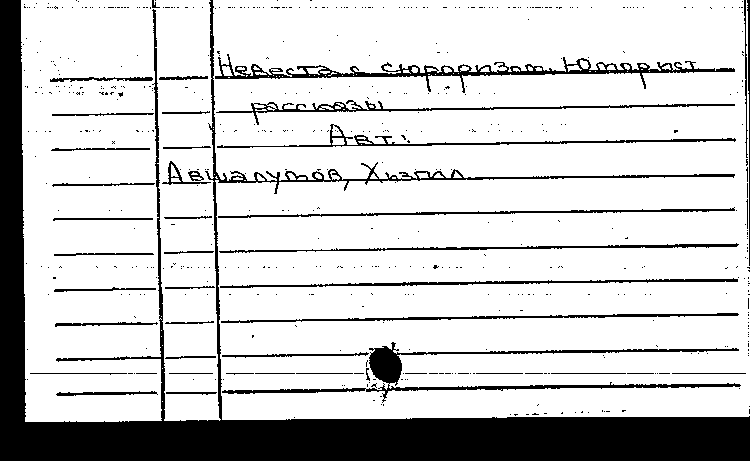 Невеста с сюрпризом. Юморист
рассказы
Авт.:
Авшалумов, Хьзгил